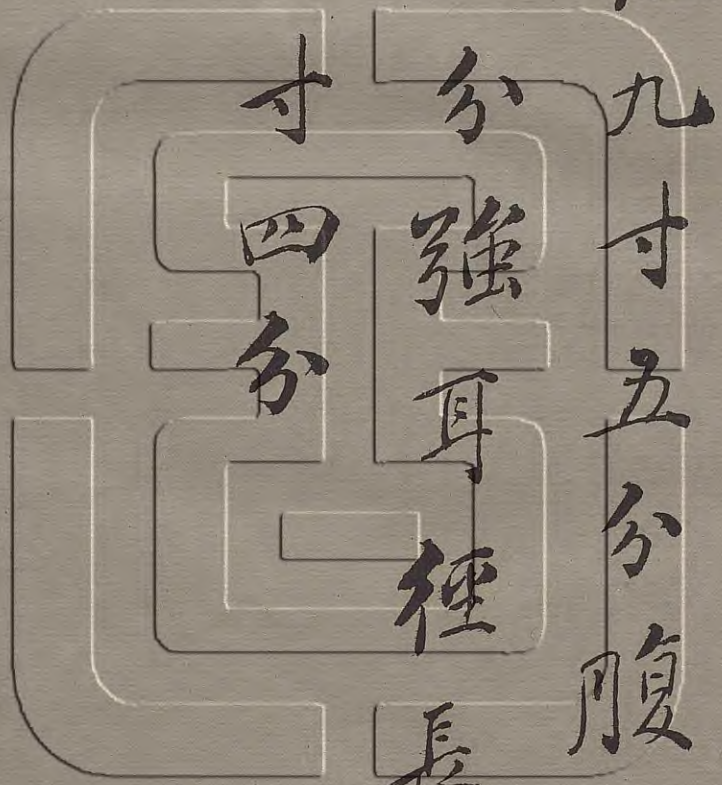 九寸五分腹
分強耳徑長
寸四分